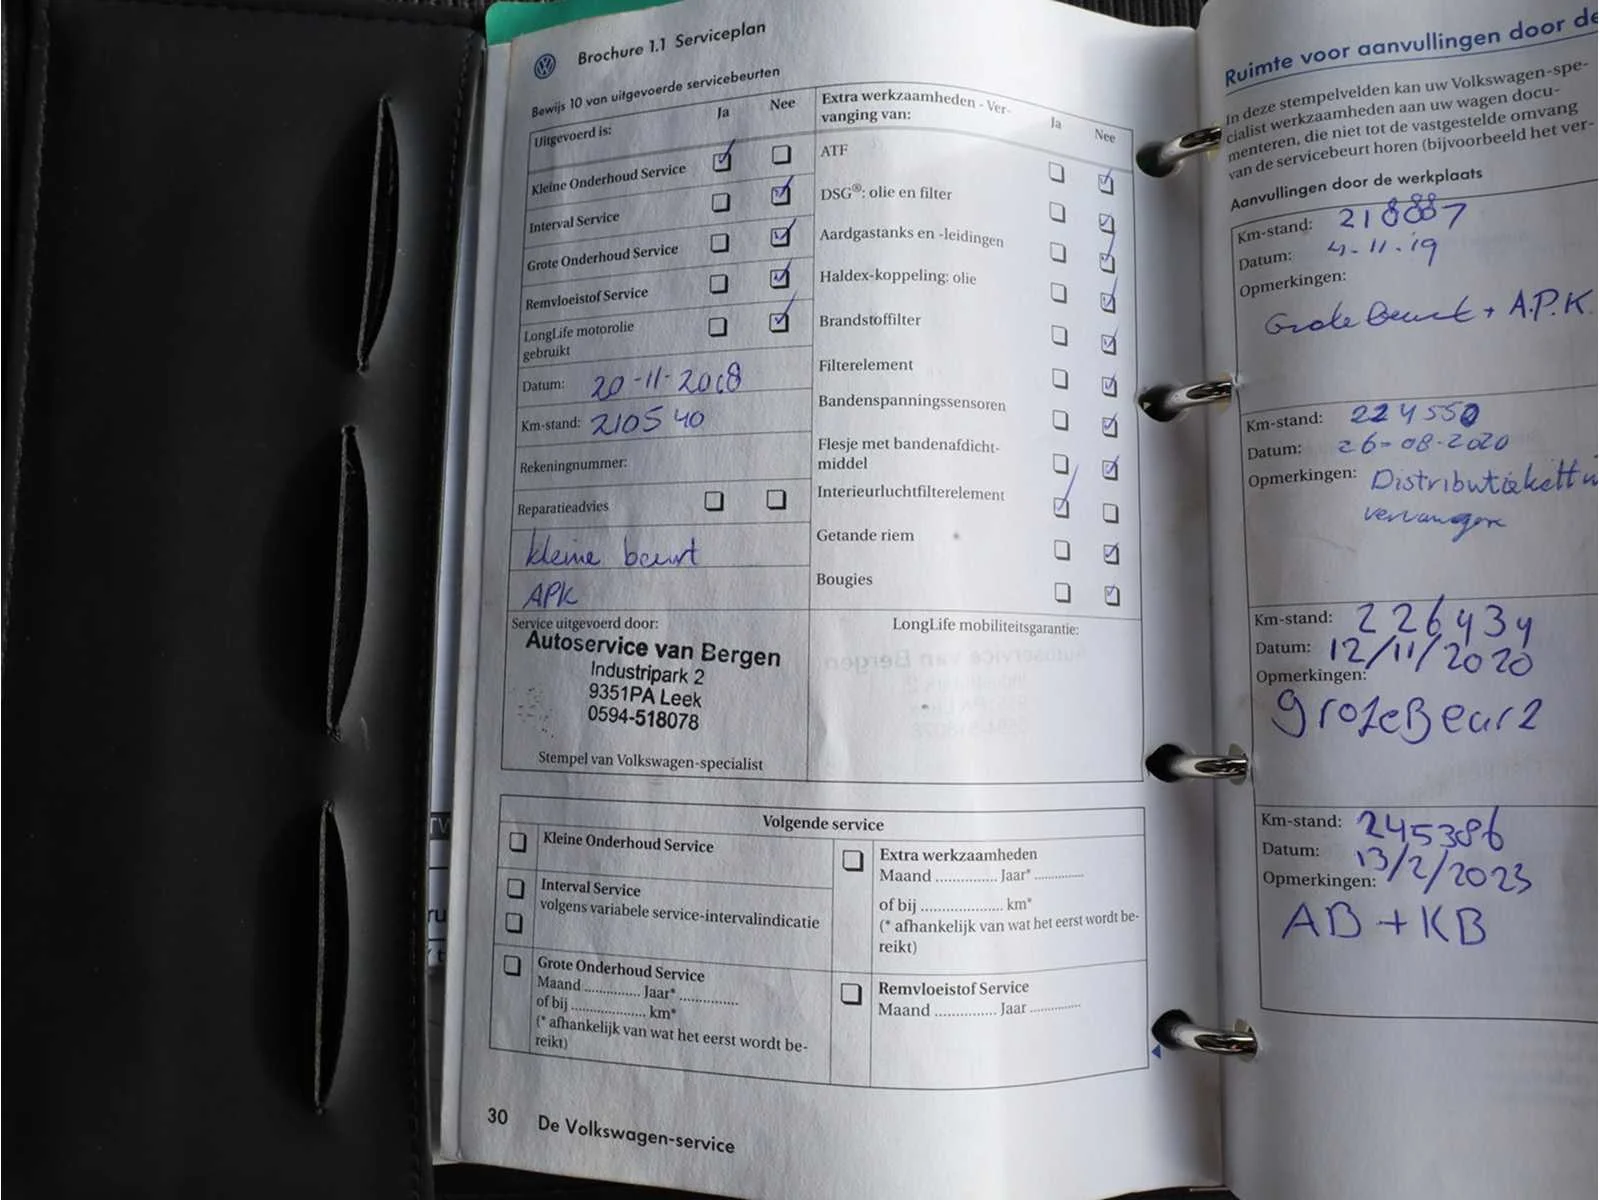 Brochure 1.1 Serviceplan
Bewijs 10 van uitgevoerde servicebeurten
Uitgevoerd is: Ja Nee
Kleine Onderhoud Service
Interval Service
Grote Onderhoud Service
Remvloeistof Service
LongLife motorolie
gebruikt
Datum: 20-11-2018
Km-stand: 210540
Rekeningnummer:
Reparatieadvies
kleine beurt
APK
Service uitgevoerd door:
Autoservice van Bergen
Industripark 2
9351PA Leek
0594-518078
Stempel van Volkswagen-specialist
Extra werkzaamheden - Ver-
vanging van: Ja Nee
ATF
DSG®: olie en filter
Aardgastanks en -leidingen
Haldex-koppeling: olie
Brandstoffilter
Filterelement
Bandenspanningssensoren
Flesje met bandenafdicht-
middel
Interieurluchtfilterelement
Getande riem
Bougies
LongLife mobiliteitsgarantie:
Volgende service
Kleine Onderhoud Service
Interval Service
volgens variabele service-intervalindicatie
Grote Onderhoud Service
Maand .............. Jaar* ..............
of bij .................... km*
(* afhankelijk van wat het eerst wordt be-
reikt)
Extra werkzaamheden
Maand ............... Jaar* ............
of bij .................... km*
(* afhankelijk van wat het eerst wordt be-
reikt)
Remvloeistof Service
Maand ............... Jaar ............
30 De Volkswagen-service
Ruimte voor aanvullingen door de
In deze stempelvelden kan uw Volkswagen-spe-
cialist werkzaamheden aan uw wagen docu-
menteren, die niet tot de vastgestelde omvang
van de servicebeurt horen (bijvoorbeeld het ver-
Aanvullingen door de werkplaats
Km-stand: 218887
Datum: 4-11-19
Opmerkingen:
Grote Beurt + A.P.K
Km-stand: 224550
Datum: 26-08-2020
Opmerkingen: Distributiekett
vervangen
Km-stand: 226434
Datum: 12/11/2020
Opmerkingen:
GroteBeurt
Km-stand: 245386
Datum: 13/2/2023
Opmerkingen:
AB + KB